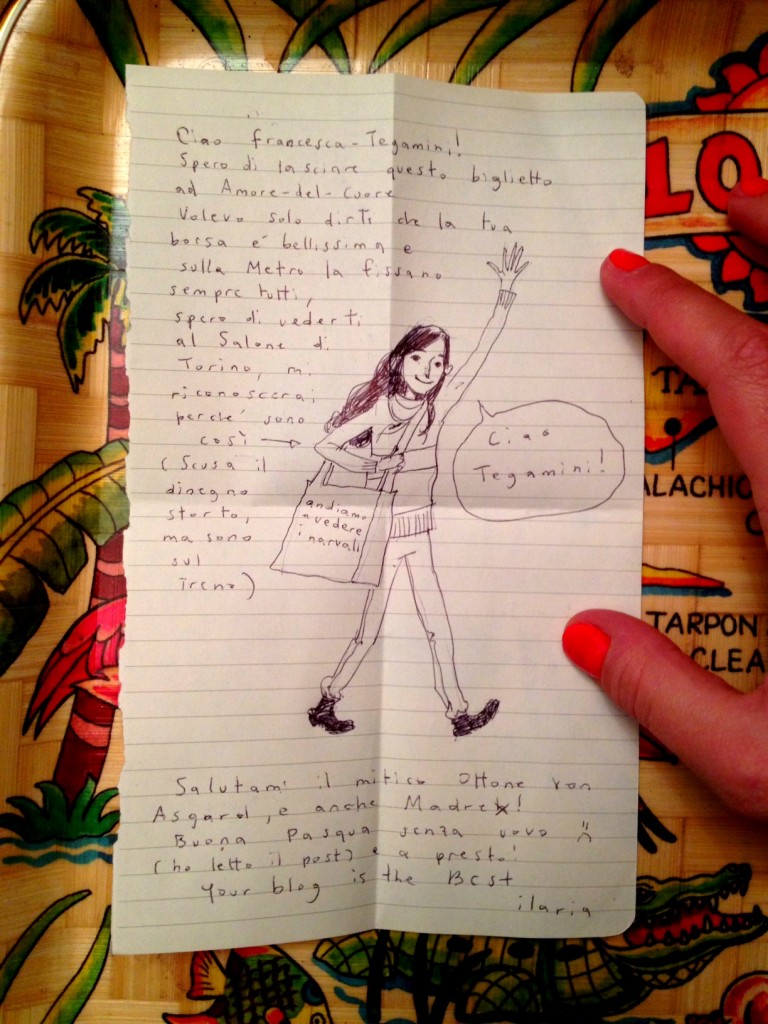 Ciao francesca-Tegamini!
Spero di lasciare questo biglietto
ad Amore-del-Cuore
Volevo solo dirti che la tua
borsa é bellissima e
sulla Metro la fissano
sempre tutti,
spero di vederti
al Salone di
Torino, mi
riconoscerai
perché sono
così →
(Scusa il
disegno
storto,
ma sono
sul
treno)
Ciao
Tegamini!
andiamo
a vedere
i narvali
Salutami il mitico Ottone von
Asgard, e anche Madre!
Buona Pasqua senza uovo :(
(ho letto il post) e a presto!
Your blog is the Best
ilaria
LO
TA
ALACHIC
TARPON
CLEA